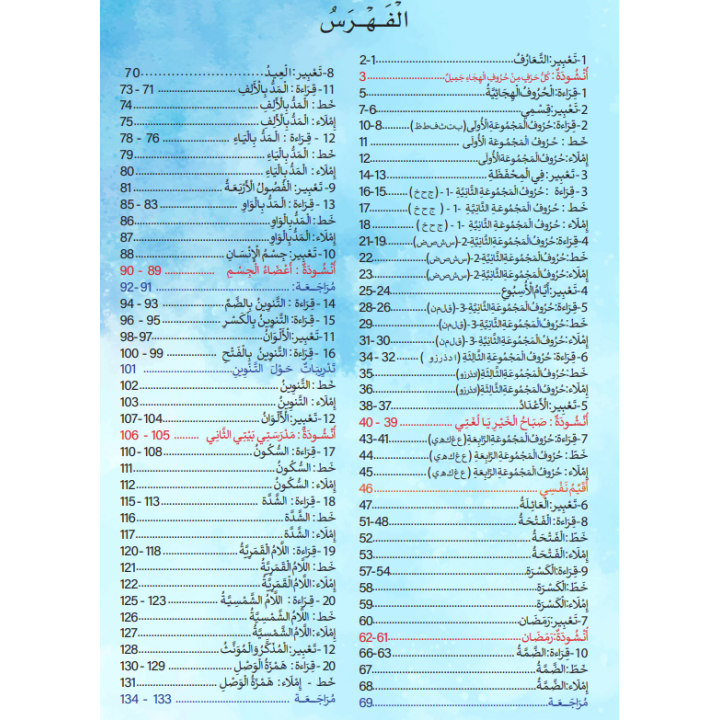 الْفَهْرَسُ
1-تَعْبِير: التَّعَارُفُ.......1-2
أُنْشُودَةٌ : كُلُّ حَرْفٍ مِنْ حُرُوفِ الْهِجَاءِ جَمِيلٌ.......3
1-قِرَاءة: الْحُرُوفُ الْهِجَائِيَّةُ.......5
2-تَعْبِير: قِسْمِي.......6-7
2-قِرَاءة: حُرُوفُ الْمَجْمُوعَةِ الْأُولَى (ب ت ث ف ط ظ).......8-10
خَط : حُرُوفُ الْمَجْمُوعَةِ الْأُولَى.......11
إِمْلَاء: حُرُوفُ الْمَجْمُوعَةِ الْأُولَى.......12
3- تَعْبِير: فِي الْمِحْفَظَةِ.......13-14
3-قِرَاءة : حُرُوفُ الْمَجْمُوعَةِ الثَّانِيَّةِ -1- ( ج ح خ ).......15-16
خَط : حُرُوفُ الْمَجْمُوعَةِ الثَّانِيَّةِ -1- ( ج ح خ ).......17
إِمْلَاء: حُرُوفُ الْمَجْمُوعَةِ الثَّانِيَّةِ -1- ( ج ح خ ).......18
4-قِرَاءة: حُرُوفُ الْمَجْمُوعَةِ الثَّانِيَّةِ-2-(س ش ص ض).......19-21
خَط: حُرُوفُ الْمَجْمُوعَةِ الثَّانِيَّةِ-2-(س ش ص ض).......22
إِمْلَاء: حُرُوفُ الْمَجْمُوعَةِ الثَّانِيَّةِ-2-(س ش ص ض).......23
4- تَعْبِير: أَيَّامُ الْأُسْبُوعِ.......24-25
5-قِرَاءة: حُرُوفُ الْمَجْمُوعَةِ الثَّانِيَّةِ-3-(ق ل م ن).......26-28
خَط: حُرُوفُ الْمَجْمُوعَةِ الثَّانِيَّةِ-3-(ق ل م ن).......29
إِمْلَاء: حُرُوفُ الْمَجْمُوعَةِ الثَّانِيَّةِ-3-(ق ل م ن).......30-31
6-قِرَاءة: حُرُوفُ الْمَجْمُوعَةِ الثَّالِثَةِ ( ا د ذ ر ز و ).......32 - 34
خَط: حُرُوفُ الْمَجْمُوعَةِ الثَّالِثَةِ (ا د ذ ر ز و).......35
إِمْلَاء: حُرُوفُ الْمَجْمُوعَةِ الثَّالِثَةِ (ا د ذ ر ز و).......36
5-تَعْبِير: الْأَعْدَادُ.......37-38
أُنْشُودَةٌ : صَبَاحُ الْخَيْرِ يَا لُغَتِي.......39 - 40
7-قِرَاءة: حُرُوفُ الْمَجْمُوعَةِ الرَّابِعَةِ (ع غ ك ه ي).......41-43
خَط: حُرُوفُ الْمَجْمُوعَةِ الرَّابِعَةِ (ع غ ك ه ي).......44
إِمْلَاء: حُرُوفُ الْمَجْمُوعَةِ الرَّابِعَةِ (ع غ ك ه ي).......45
أُقَيِّمُ نَفْسِي.......46
6-تَعْبِير: الْعَائِلَةُ.......47
8-قِرَاءة: الْفَتْحَةُ.......48-51
خَط: الْفَتْحَةُ.......52
إِمْلَاء: الْفَتْحَةُ.......53
9-قِرَاءة: الْكَسْرَة.......54-57
خَط: الْكَسْرَة.......58
إِمْلَاء: الْكَسْرَة.......59
7-تَعْبِير: رَمَضَان.......60
أُنْشُودَة: رَمَضَان.......61-62
10-قِرَاءة: الضَّمَّةُ.......63-66
خَط: الضَّمَّةُ.......67
إِمْلَاء: الضَّمَّةُ.......68
مُرَاجَعَة.......69
8-تَعْبِير: الْعِيدُ.......70
11-قِرَاءة: الْمَدُّ بِالْأَلِفِ.......71 - 73
خَط: الْمَدُّ بِالْأَلِفِ.......74
إِمْلَاء: الْمَدُّ بِالْأَلِفِ.......75
12- قِرَاءة : الْمَدُّ بِالْيَاءِ.......76 - 78
خَط: الْمَدُّ بِالْيَاءِ.......79
إِمْلَاء: الْمَدُّ بِالْيَاءِ.......80
9-تَعْبِير: الْفُصُولُ الْأَرْبَعَةُ.......81
13-قِرَاءة: الْمَدُّ بِالْوَاوِ.......83 - 85
خَط: الْمَدُّ بِالْوَاوِ.......86
إِمْلَاء: الْمَدُّ بِالْوَاوِ.......87
10-تَعْبِير: جِسْمُ الْإِنْسَانِ.......88
أُنْشُودَةٌ : أَعْضَاءُ الْجِسْمِ.......89 - 90
مُرَاجَعَة:.......91-92
14-قِرَاءة : التَّنْوِينُ بِالضَّمِّ.......93 - 94
15-قِرَاءة: التَّنْوِينُ بِالْكَسْرِ.......95 - 96
11-تَعْبِير: الْأَلْوَانُ.......97-98
16-قِرَاءة: التَّنْوِينُ بِالْفَتْحِ.......99 - 100
تَدْرِيبَاتٌ حَوْلَ التَّنْوِينِ.......101
خَط: التَّنْوِينُ.......102
إِمْلَاء: التَّنْوِينُ.......103
12-تَعْبِير: الْأَلْوَانُ.......104-107
أُنْشُودَةٌ: مَدْرَسَتِي بَيْتِي الثَّانِي.......105 - 106
17-قِرَاءة : السُّكُونُ.......108-110
خَط: السُّكُونُ.......111
إِمْلَاء: السُّكُونُ.......112
18-قِرَاءة : الشَّدَّة.......113-115
خَط: الشَّدَّة.......116
إِمْلَاء: الشَّدَّة.......117
19-قِرَاءة: اللَّامُ الْقَمَرِيَّةُ.......118-120
خَط: اللَّامُ الْقَمَرِيَّةُ.......121
إِمْلَاء: اللَّامُ الْقَمَرِيَّةُ.......122
20-قِرَاءة : اللَّامُ الشَّمْسِيَّةُ.......123 - 125
خَط: اللَّامُ الشَّمْسِيَّةُ.......126
إِمْلَاء: اللَّامُ الشَّمْسِيَّةُ.......127
12-تَعْبِير: الْمُذَكَّرُ وَالْمُؤَنَّثُ.......128
20-قِرَاءة : هَمْزَةُ الْوَصْلِ.......129-130
خَط - إِمْلَاء: هَمْزَةُ الْوَصْلِ.......131
مُرَاجَعَة.......133 - 134